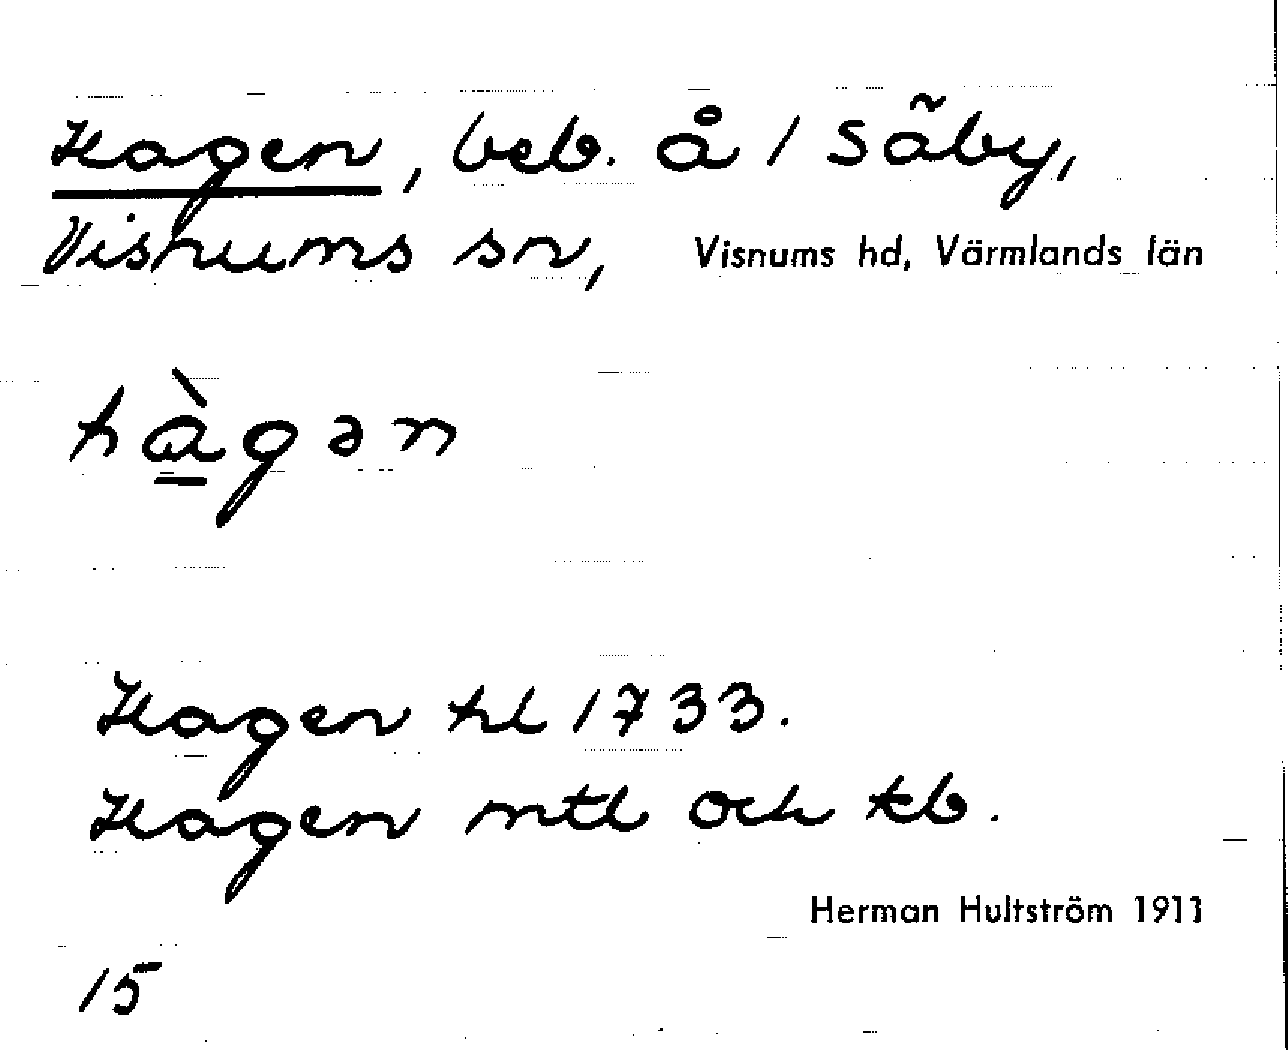 Hagen, beb. å 1 Säby,
Visnums sn, Visnums hd, Värmlands län
hàgən
Hagen hl 1733.
Hagen mtl och kb.
Herman Hultström 1911
15